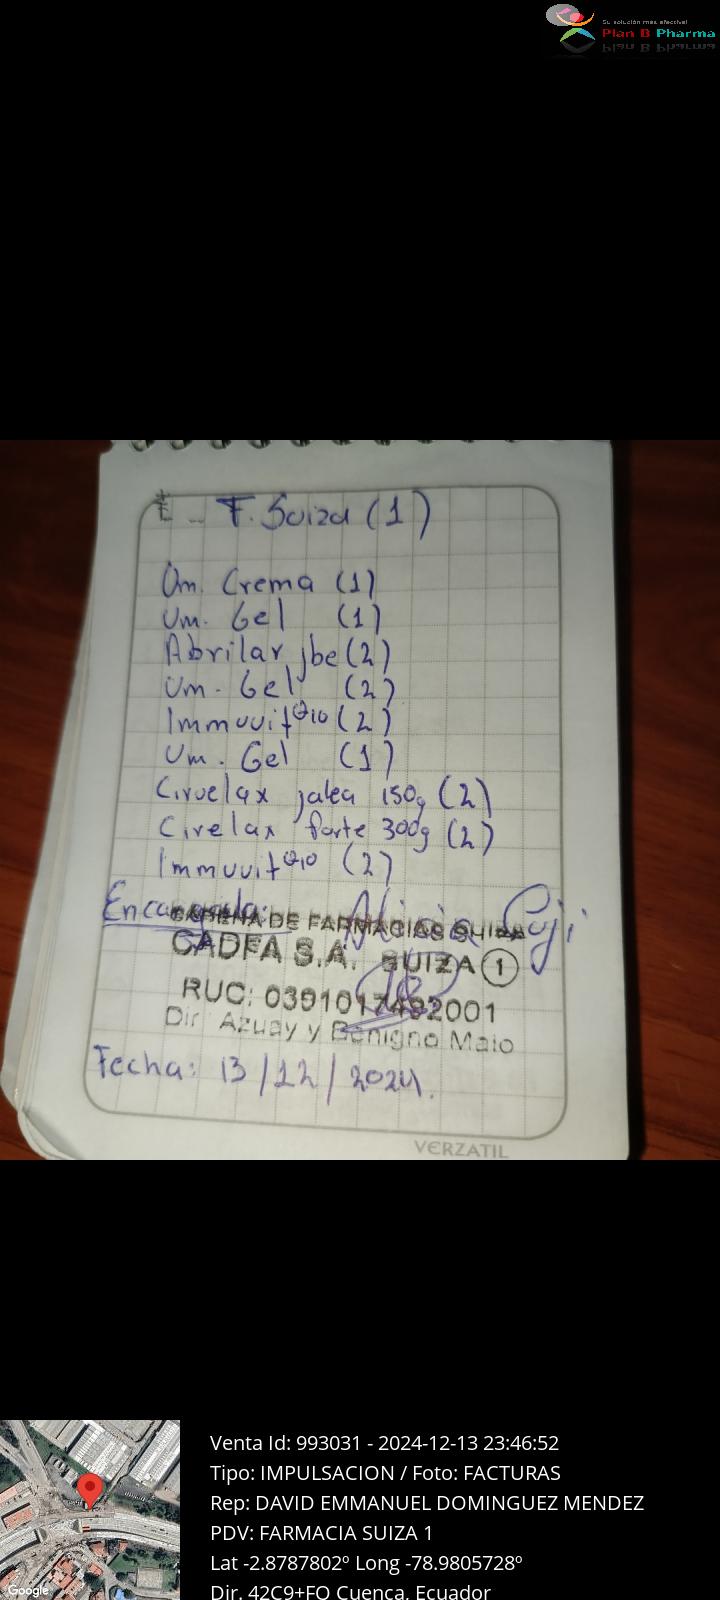 Su solución más efectiva!
Plan B Pharma
F. Suiza (1)
Um. Crema (1)
Um. Gel (1)
Abrilar jbe (2)
Um. Gel (2)
Immuvit Q10 (2)
Um. Gel (1)
Ciruelax jalea 150g (2)
Cirelax forte 300g (2)
Immuvit Q10 (2)
Encargada: Alicia
CADENA DE FARMACIAS SUIZA
CADFA S.A. SUIZA 1
RUC: 0391017492001
Dir: Azuay y Benigno Malo
Fecha: 13/12/2024.
VERZATIL
Venta Id: 993031 - 2024-12-13 23:46:52
Tipo: IMPULSACION / Foto: FACTURAS
Rep: DAVID EMMANUEL DOMINGUEZ MENDEZ
PDV: FARMACIA SUIZA 1
Lat -2.8787802º Long -78.9805728º
Google
Dir. 42C9+FQ Cuenca, Ecuador